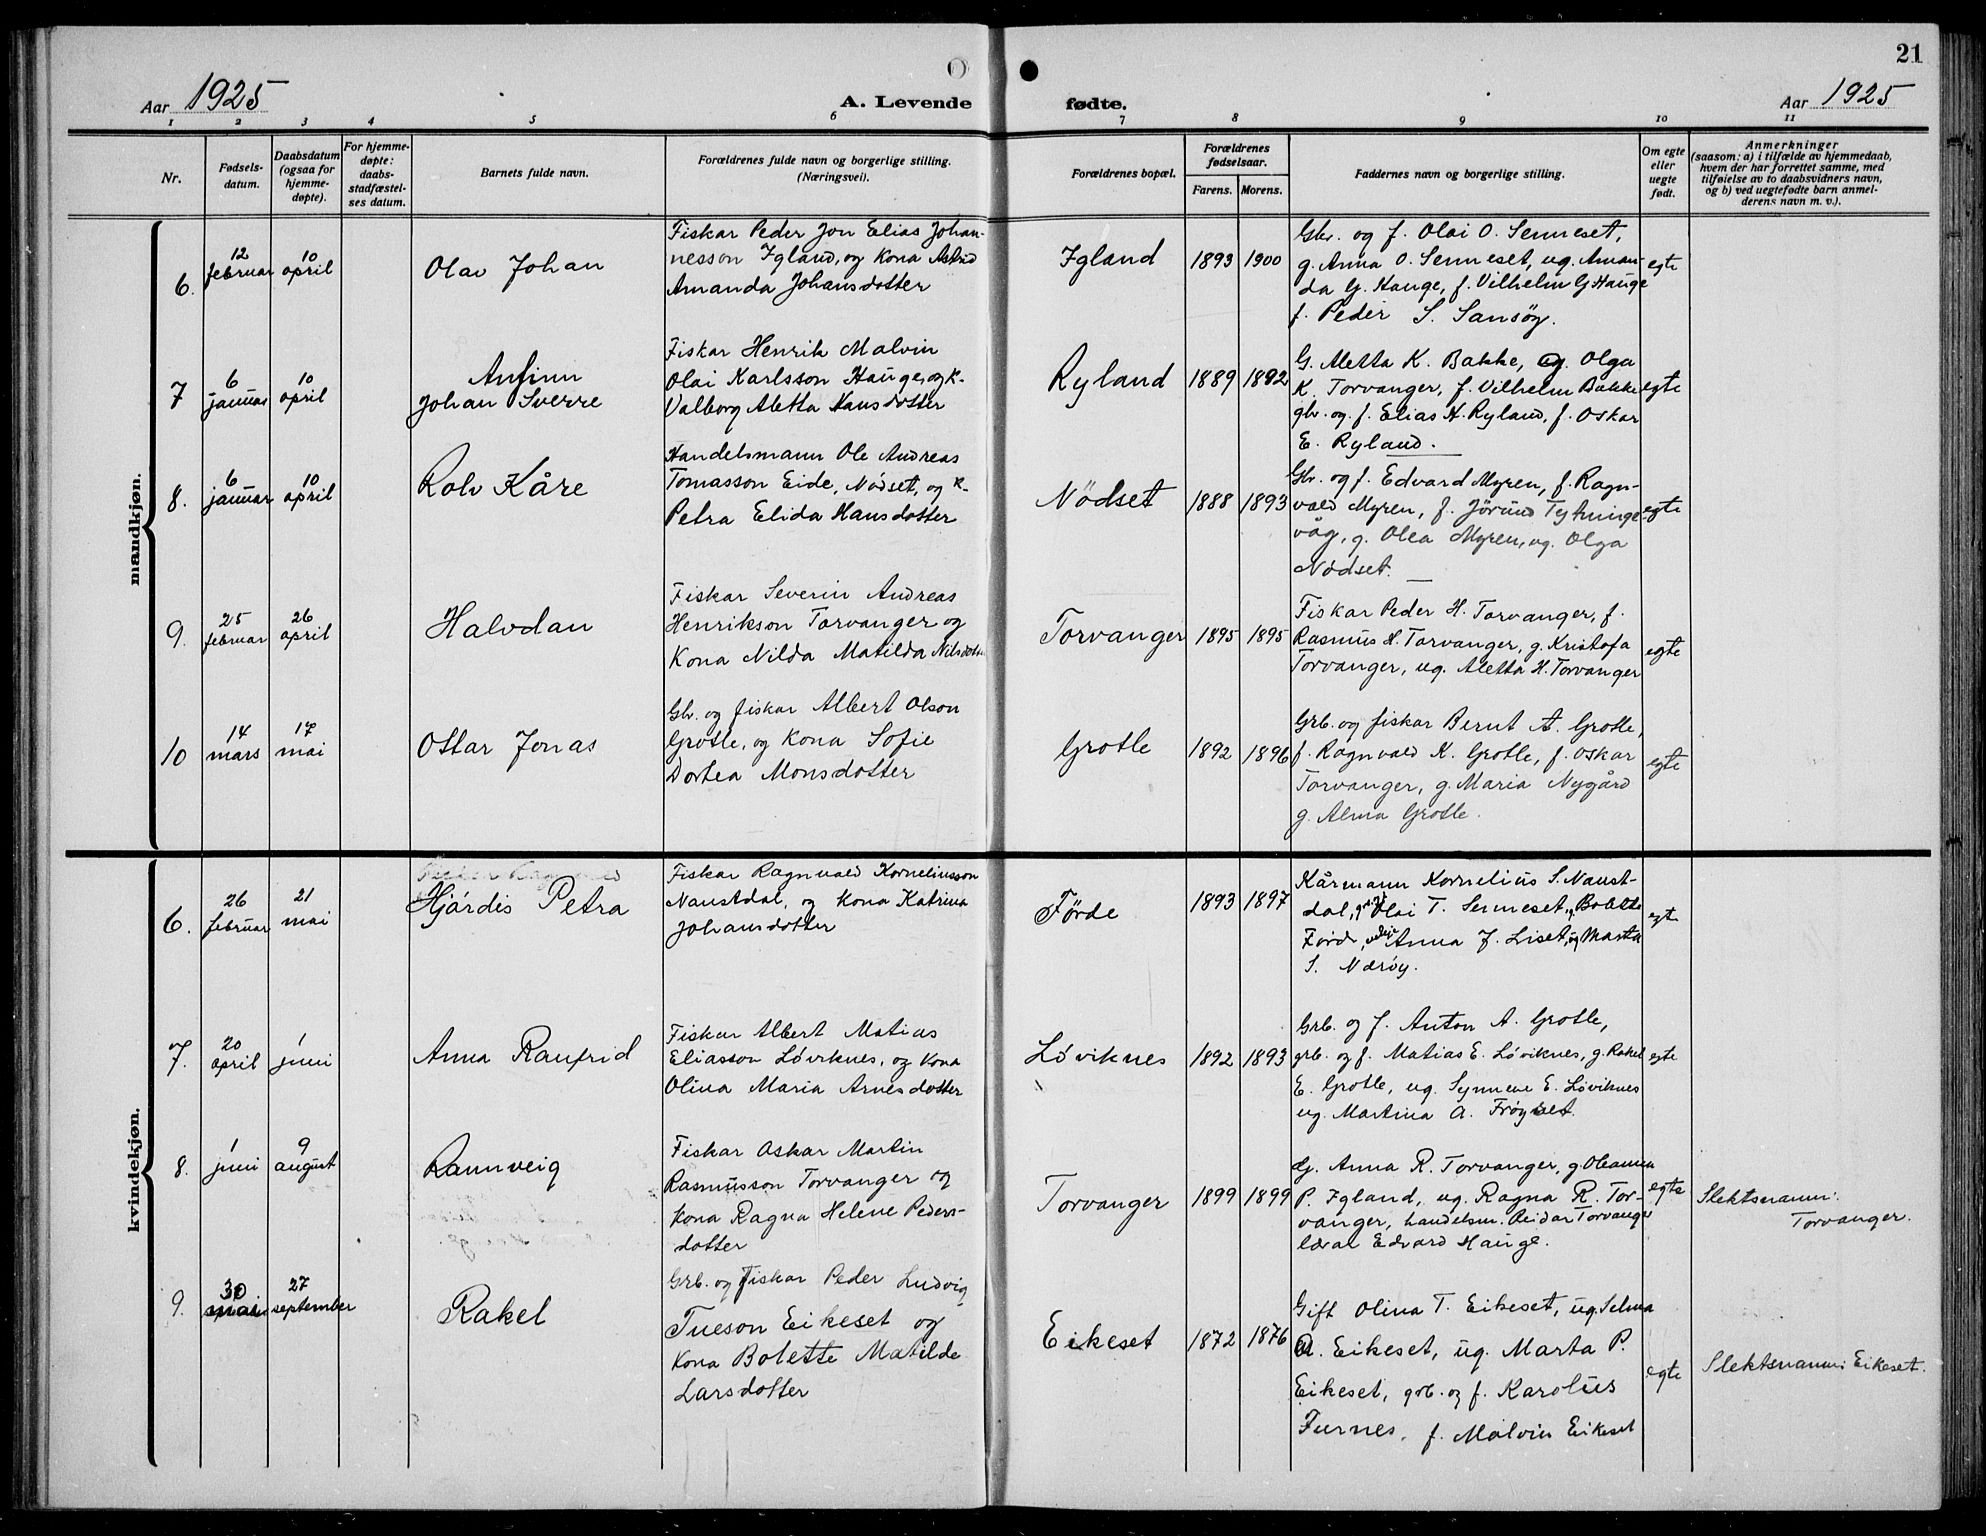 21
Aar 1925
A. Levende fødte.
Aar 1925
1 2 3 4 5 6 7 8 9 10 11
Nr.
Fødsels-
datum.
Daabsdatum
(ogsaa for
hjemme-
døpte).
For hjemme-
døpte:
daabs-
stadfæstel-
ses datum.
Barnets fulde navn.
Forældrenes fulde navn og borgerlige stilling.
(Næringsvei).
Forældrenes bopæl.
Forældrenes
fødselsaar.
Farens. Morens.
Faddernes navn og borgerlige stilling.
Om egte
eller
uegte
født.
Anmerkninger
(saasom: a) i tilfælde av hjemmedaab,
hvem der har forrettet samme, med
tilføielse av to daabsvidners navn,
og b) ved uegtefødte barn anmel-
derens navn m. v.).
mandkjøn.
6.
12
februar
10
april
Olav Johan
Fiskar Peder Jon Elias Johan-
nesson Igland, og Kona Astrid
Amanda Johansdotter
Igland
1893 1900
Gbr. og f. Olai O. Senneset,
g. Anna O. Senneset, ug. Aman-
da G. Hauge, f. Vilhelm G Hauge
f. Peder S. Sansöy.
egte
7
6
januar
10
april
Anfinn
Johan Sverre
Fiskar Henrik Malvin
Olai Karlsson Hauge, og k.
Valborg Aletta Hansdotter
Ryland
1889 1892
G. Aletta K. Bakke, ug. Olga
K. Torvanger, f. Vilhelm Bakke
gbr. og f. Elias H. Ryland, f. Oskar
E. Ryland.
egte
8.
6
januar
10
april
Rolv Kåre
Handelsmann Ole Andreas
Tomasson Eide, Nödset, og k.
Petra Elida Hansdotter
Nödset
1888 1893
Gbr. og f. Edvard Myren, f. Ragn-
vald Myren, f. Jörund Tytninge-
våg, g. Olea Myren, ug. Olga
Nödset.
egte
9.
25
februar
26
april
Halvdan
Fiskar Severin Andreas
Henrikson Torvanger og
Kona Nilda Matilda Nilsdotter
Torvanger
1895 1895
Fiskar Peder H. Torvanger, f.
Rasmus H. Torvanger, g. Kristofa
Torvanger, ug. Aletta H. Torvanger
egte
10
14
mars
17
mai
Ottar Jonas
Gbr. og fiskar Albert Olson
Grotle, og Kona Sofie
Dortea Monsdotter
Grotle
1892 1896
Grb. og fiskar Bernt A. Grotle,
f. Ragnvald K. Grotle, f. Oskar
Torvanger, g. Maria Nygård
g. Alma Grotle.
egte
kvindekjøn.
6.
26
februar
21
mai
Hjördis Petra
Fiskar Ragnvald Korneliusson
Naustdal, og Kona Katrina
Johansdotter
Förde
1893 1897
Kårmann Kornelius S. Naust-
dal, Olai T. Senneset, Bolette
Förde, Anna J. Liset, og Marta
S. Næröy.
egte
7.
20
april
1
juni
Anna Ranfrid
Fiskar Albert Matias
Eliasson Löviknes, og Kona
Olina Maria Arnesdotter
Löviknes
1892 1893
Grb. og f. Anton A. Grotle,
grb. og f. Matias E. Löviknes, g. Rakel
E. Grotle, ug. Synneve E. Löviknes
ug. Martina A. Fröyset.
egte
8.
1
juni
9
august
Rannveig
Fiskar Oskar Martin
Rasmusson Torvanger og
Kona Ragna Helene Peders-
dotter
Torvanger
1899 1899
G. Anna R. Torvanger, g. Oleanna
P. Igland, ug. Ragna R. Tor-
vanger, handelsm. Reidar Torvanger
lærar Edvard Hauge.
egte
Slektsnamn:
Torvanger.
9.
30
mai
27
september
Rakel
Grb. og fiskar Peder Ludvig
Tueson Eikeset og
Kona Bolette Matilde
Larsdotter
Eikeset
1872 1876
Gift Olina T. Eikeset, ug. Selma
A. Eikeset, ug. Marta P.
Eikeset, grb. og f. Karolus
Furnes, f. Malvin Eikeset
egte
Slektsnamn: Eikeset.